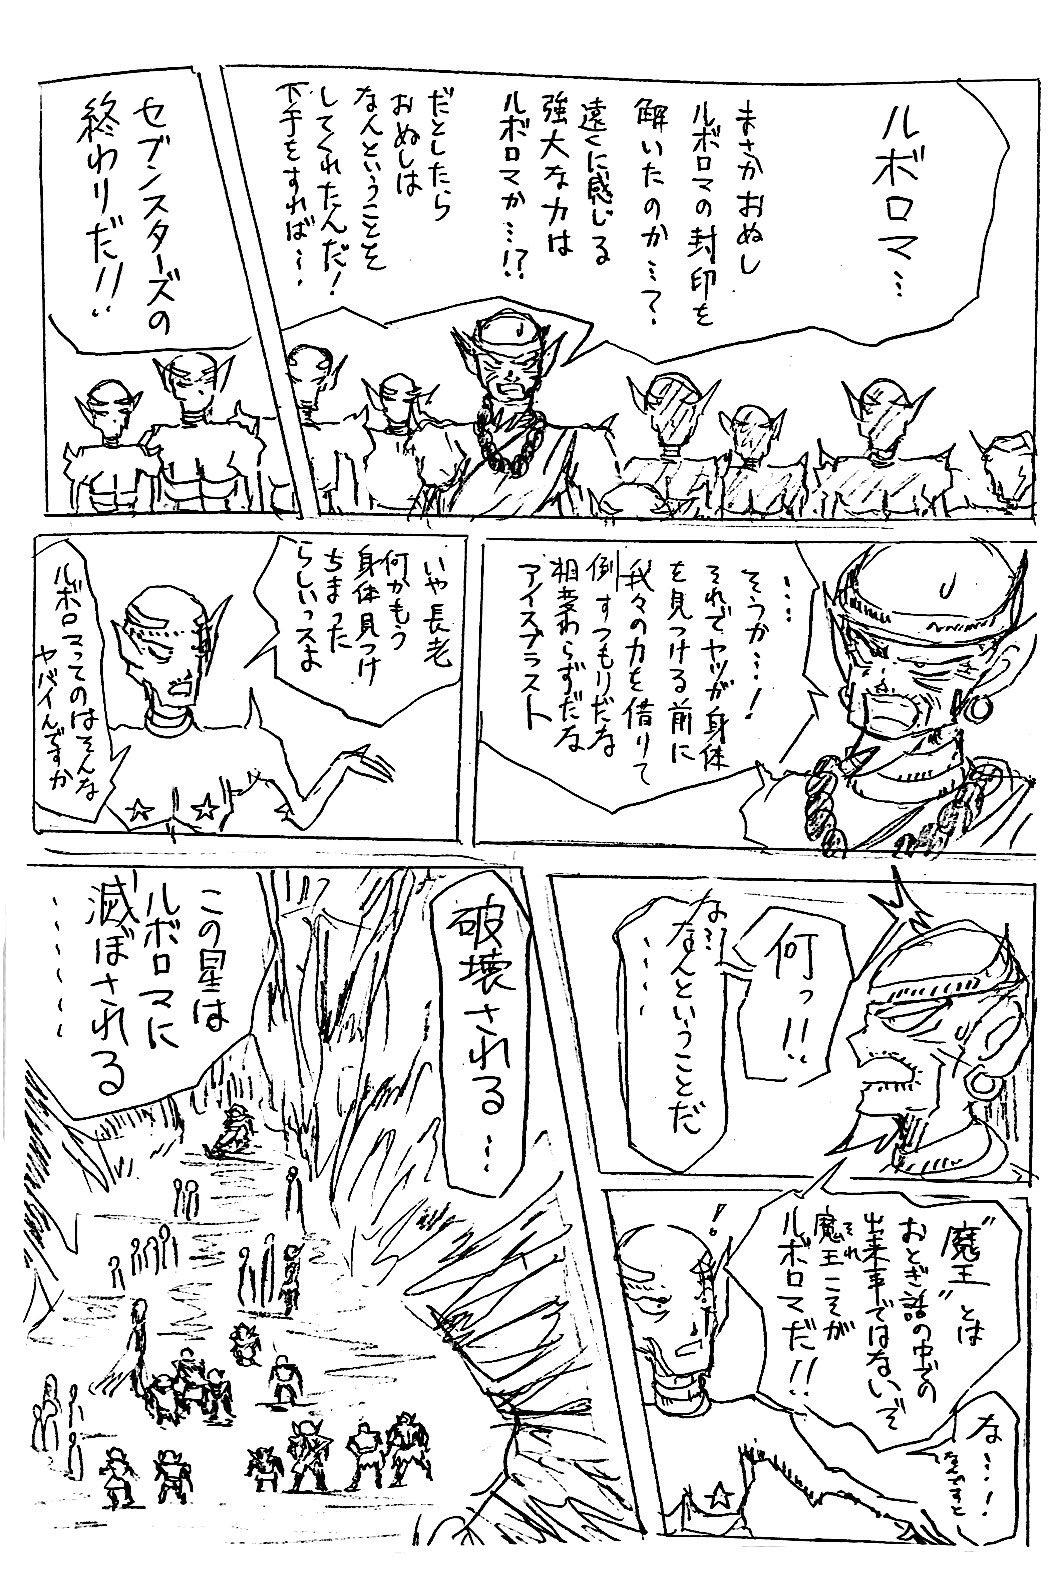 ルボロマ…
まさかおぬし
ルボロマの封印を
解いたのか…?
遠くに感じる
強大な力は
ルボロマか…!?
だとしたら
おぬしは
なんということを
してくれたんだ!
下手をすれば…
セブンスターズの
終わりだ!!
…
そうか…!
それでヤツが身体
を見つける前に
我々の力を借りて
倒すつもりだな
相変わらずだな
アイスブラスト
いや長老
何かもう
身体見つけ
ちまった
らしいっスよ
ルボロマってのはそんな
ヤバイんですか
何っ!!
な…
なんということだ
……
"魔王"とは
おとぎ話の中での
出来事ではないぞ
魔王こそが
それ
ルボロマだ!!
!
な…!
なんですと
破壊される…
この星は
ルボロマに
滅ぼされる
……